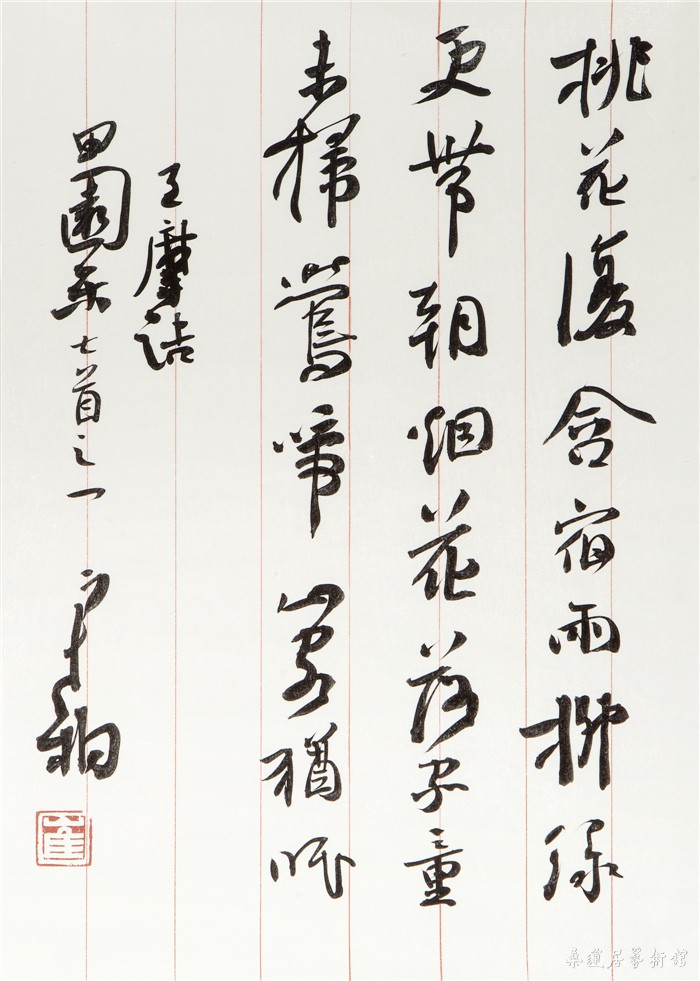 桃花復含宿雨柳綠
更帶朝烟花落家童
未掃鶯啼山客猶眠
王摩詰
田園樂七首之一
寒柏
崔
桑蓮居藝術館